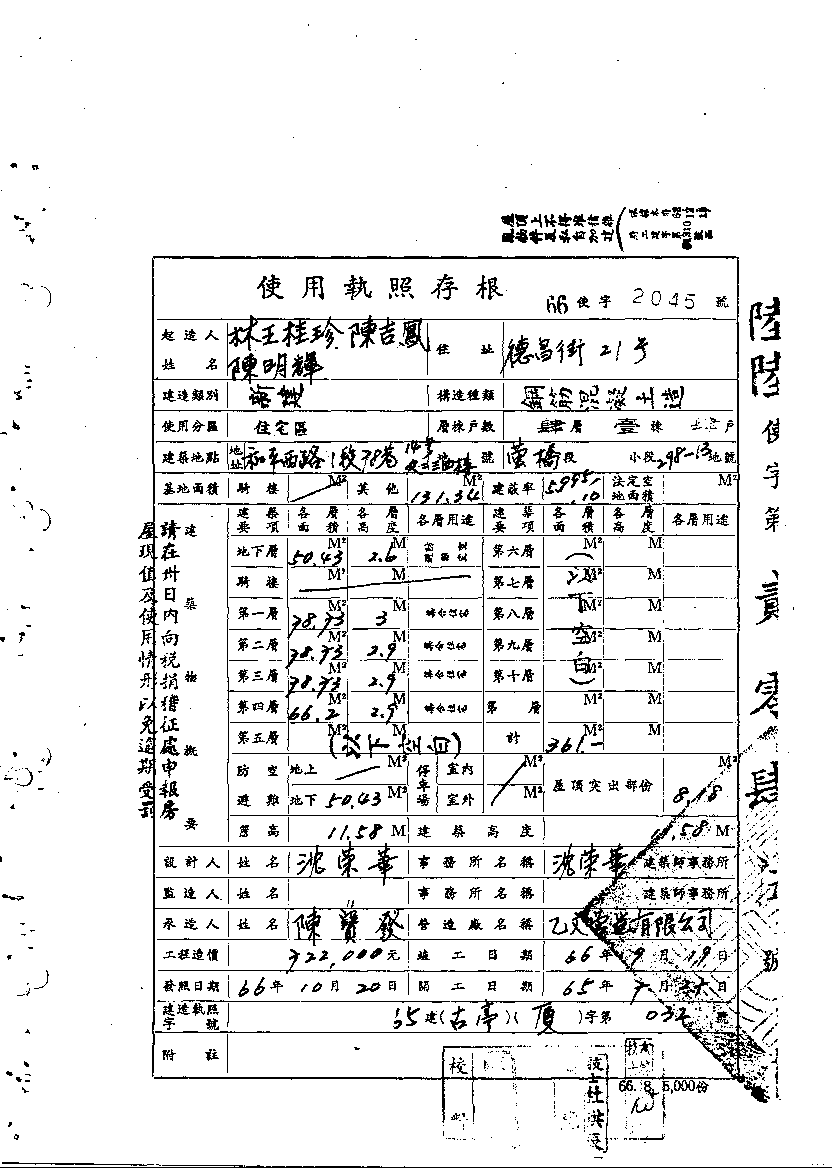 使用執照存根
66 使字 2045 號
起造人姓名 林王桂珍 陳吉鳳 陳明輝 住址 德昌街21号
建造類別 構造種類 鋼筋混凝土造
使用分區 住宅區 層棟戶數 肆層 壹棟 戶
建築地點 地址 和平西路1段78巷 號 螢橋段 小段298-13地號
基地面積 騎樓 M² 其他 131.34 建蔽率 法定空地面積 M²
建築要項 各層面積 各層高度 各層用途 建築要項 各層面積 各層高度 各層用途
地下層 50.43 M² 2.6 M 第六層 M² M
騎樓 M² M 第七層 M² M
第一層 78.73 M² 3 M 第八層 M² M
第二層 78.73 M² 2.9 M 第九層 M² M
第三層 78.73 M² 2.9 M 第十層 M² M
第四層 66.2 M² 2.9 M 第 層 M² M
第五層 M² M 計 361.- M² M
(以下空白)
(以下空白)
防空避難 地上 M² 停車場 室內 M² 屋頂突出部份 8.18 M²
地下 50.43 M² 室外 M²
簷高 11.58 M 建築高度 11.58 M
建築物概要
設計人 姓名 沈榮華 事務所名稱 沈榮華 建築師事務所
監造人 姓名 事務所名稱 建築師事務所
承造人 姓名 陳寶發 營造廠名稱 營造有限公司
工程造價 322,000元 竣工日期 66年9月19日
發照日期 66年10月20日 開工日期 65年7月 日
建造執照字號 65建(古亭)( )字第 032 號
附註
請在卅日內向稅捐稽征處申報房
屋現值及使用情形以免逾期受罰
陸陸使字第貳零肆伍號
校
66. 8. 5,000份